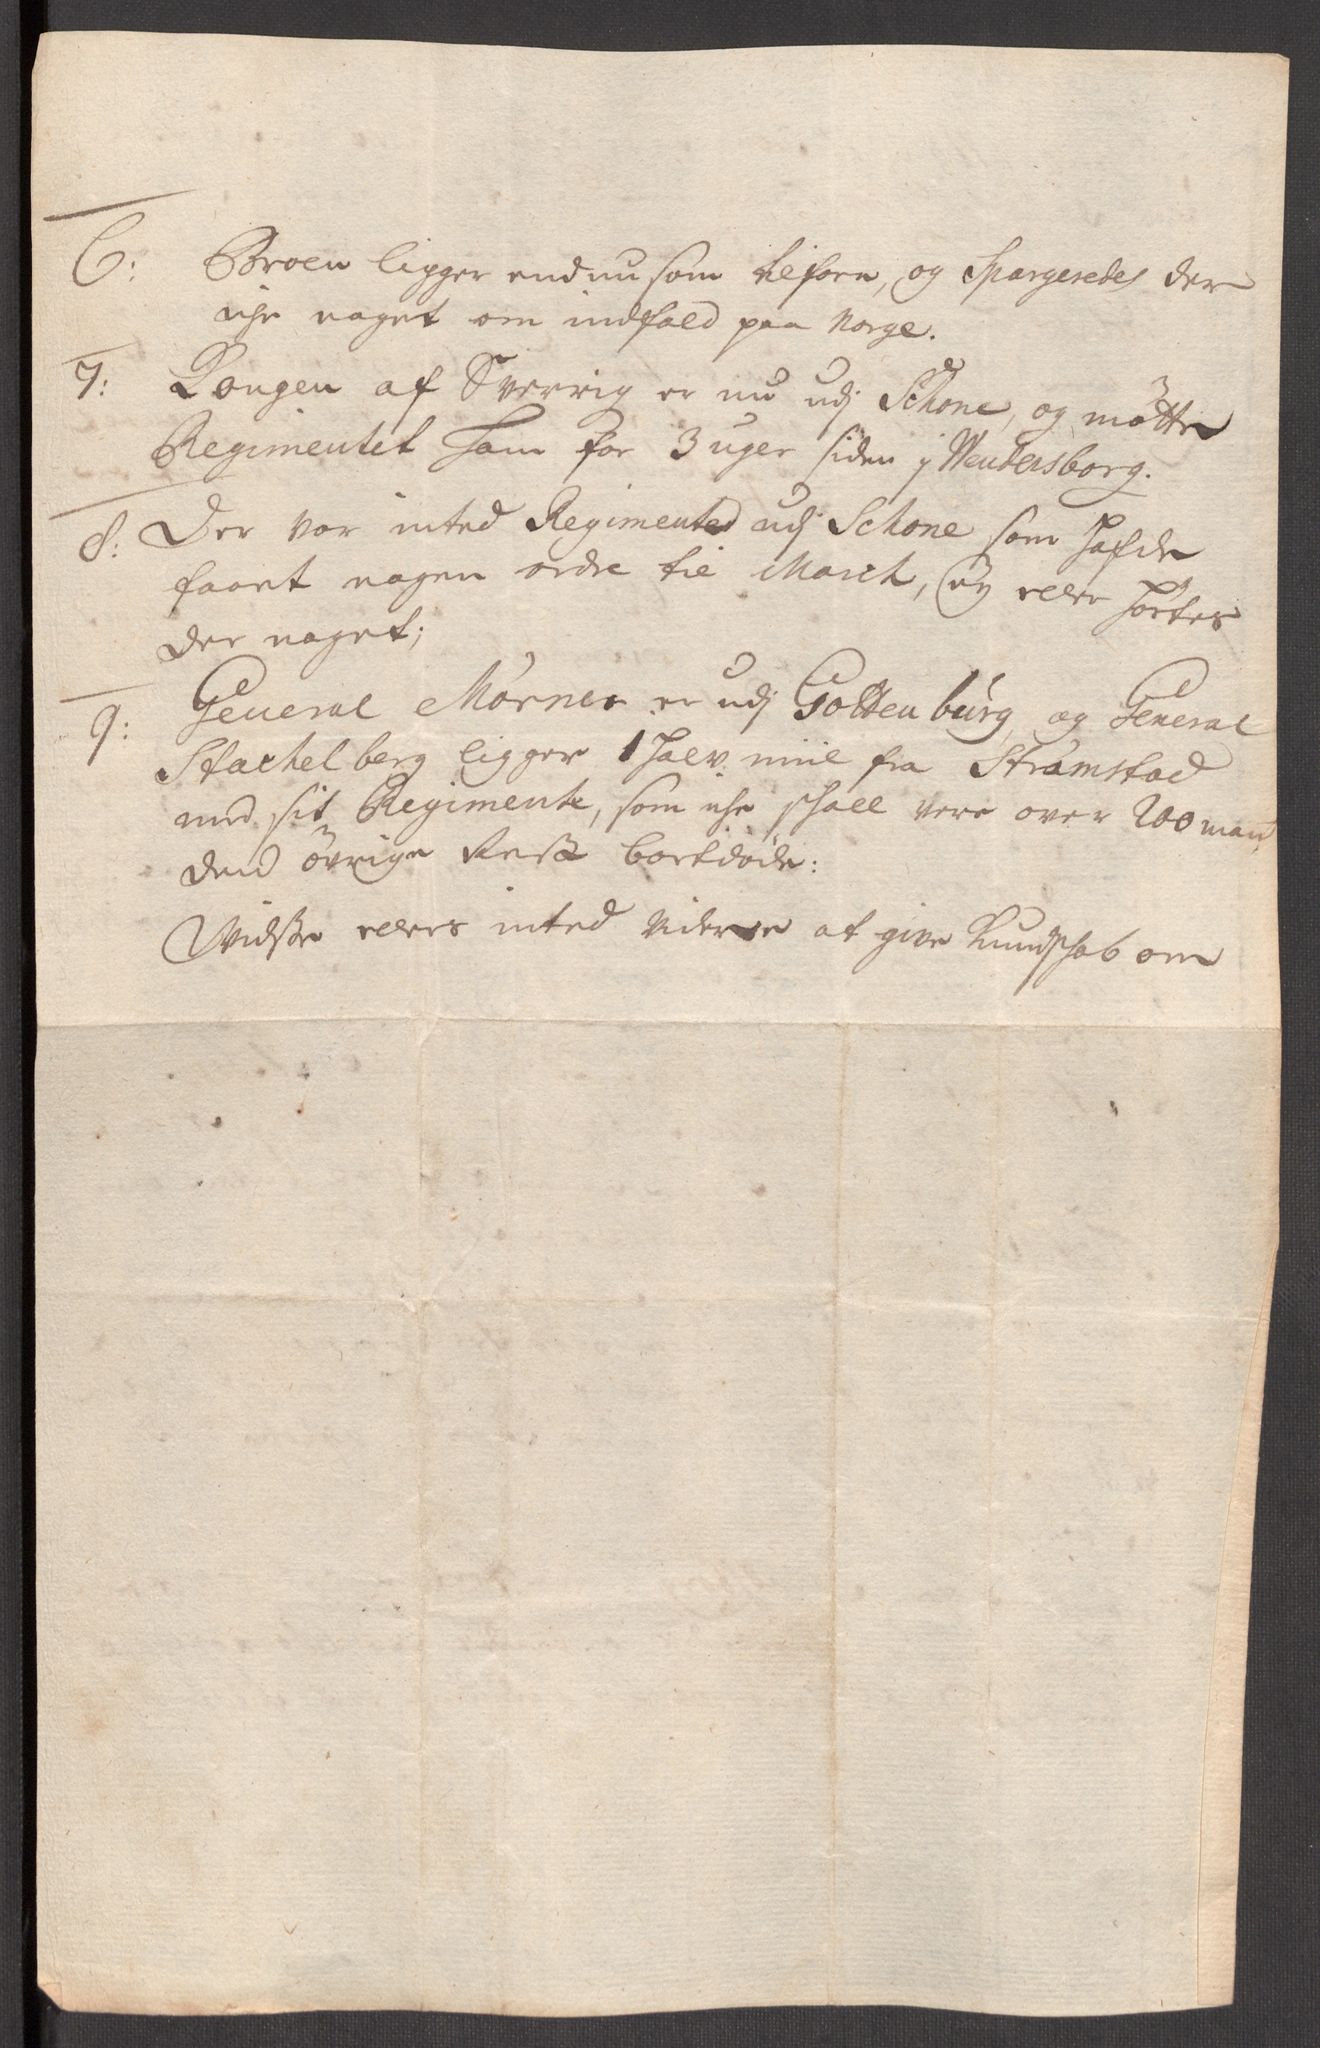 6: Broen ligger endnu som tilforn, og Spargeredes der
iche noget om indfald paa Norge.
7: Kongen af Sverrig er nu udj Schone, og mötte
Regimentet ham for 3 uger siden j Wendersborg.
8: Der var inted Regimented udj Schone som hafde
faaet nogen ordre til March, ej eller hörtes
der noget;
9: General Mörner er udj Gottenburg og General
Stachelberg ligger 1 halv miil fra Strömstad
med sit Regimente, som iche schall vere over 200 man,
dend övrige Rest bortdöde:
Widste ellers inted videre at give kundschab om